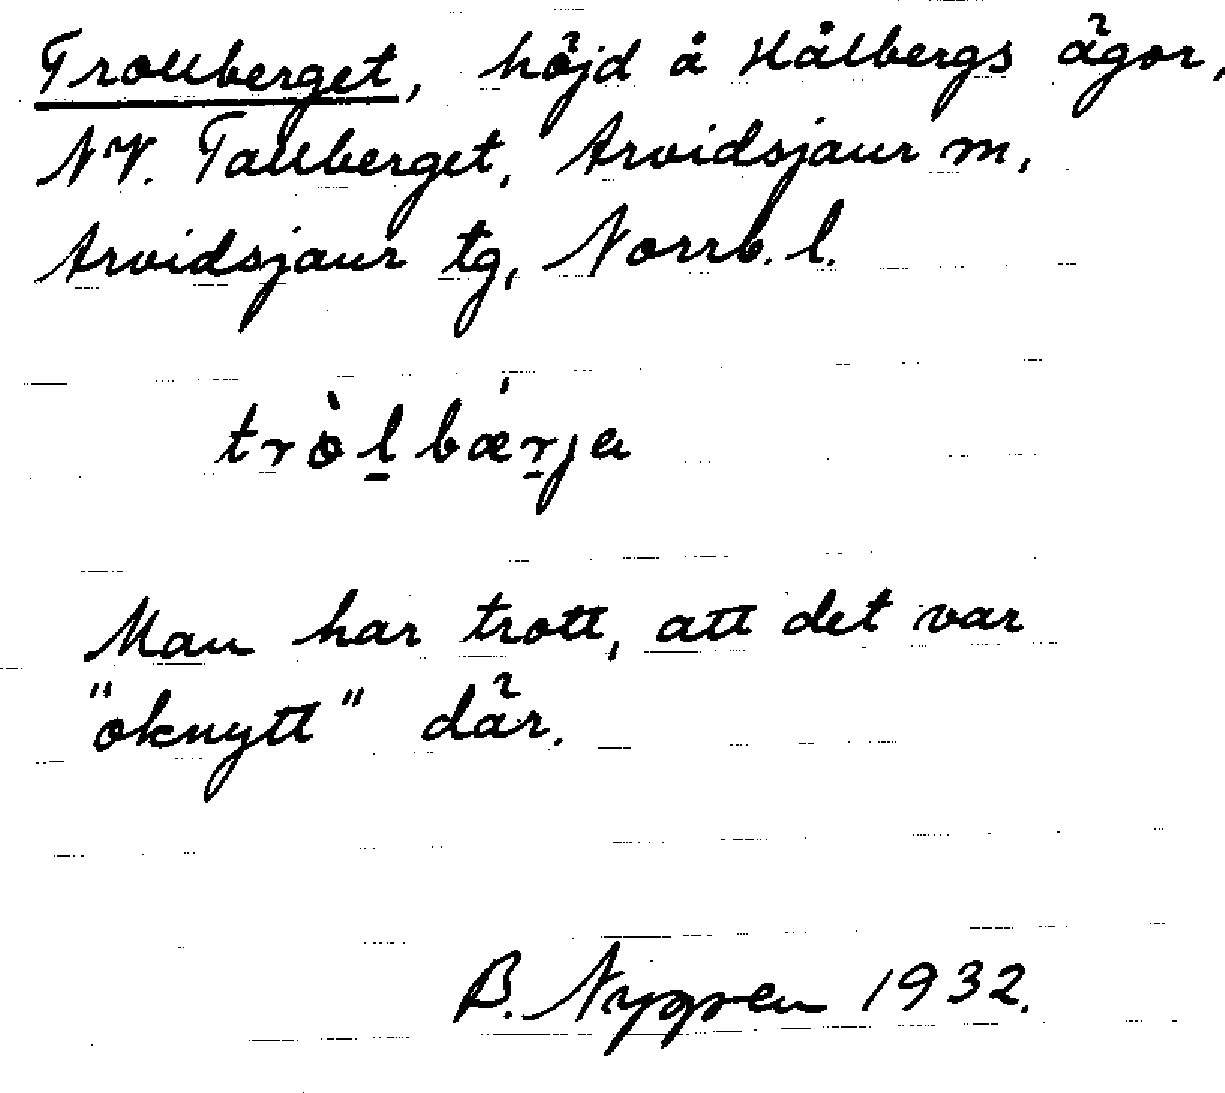 Trollberget, höjd å Hålbergs ägor,
NV. Tallberget, Arvidsjaur m,
Arvidsjaur tg, Norrb. l.
tròl̠bær̠ja
Man har trott, att det var
"oknytt" där.
B. Nygren 1932.